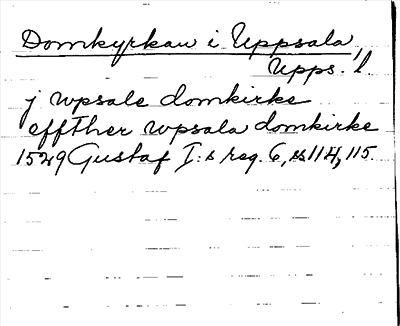 Domkyrkan i Uppsala,
Upps. l.
j wpsale domkirke
effther wpsala domkirke
1529 Gustaf I:s reg. 6, ss 114, 115.